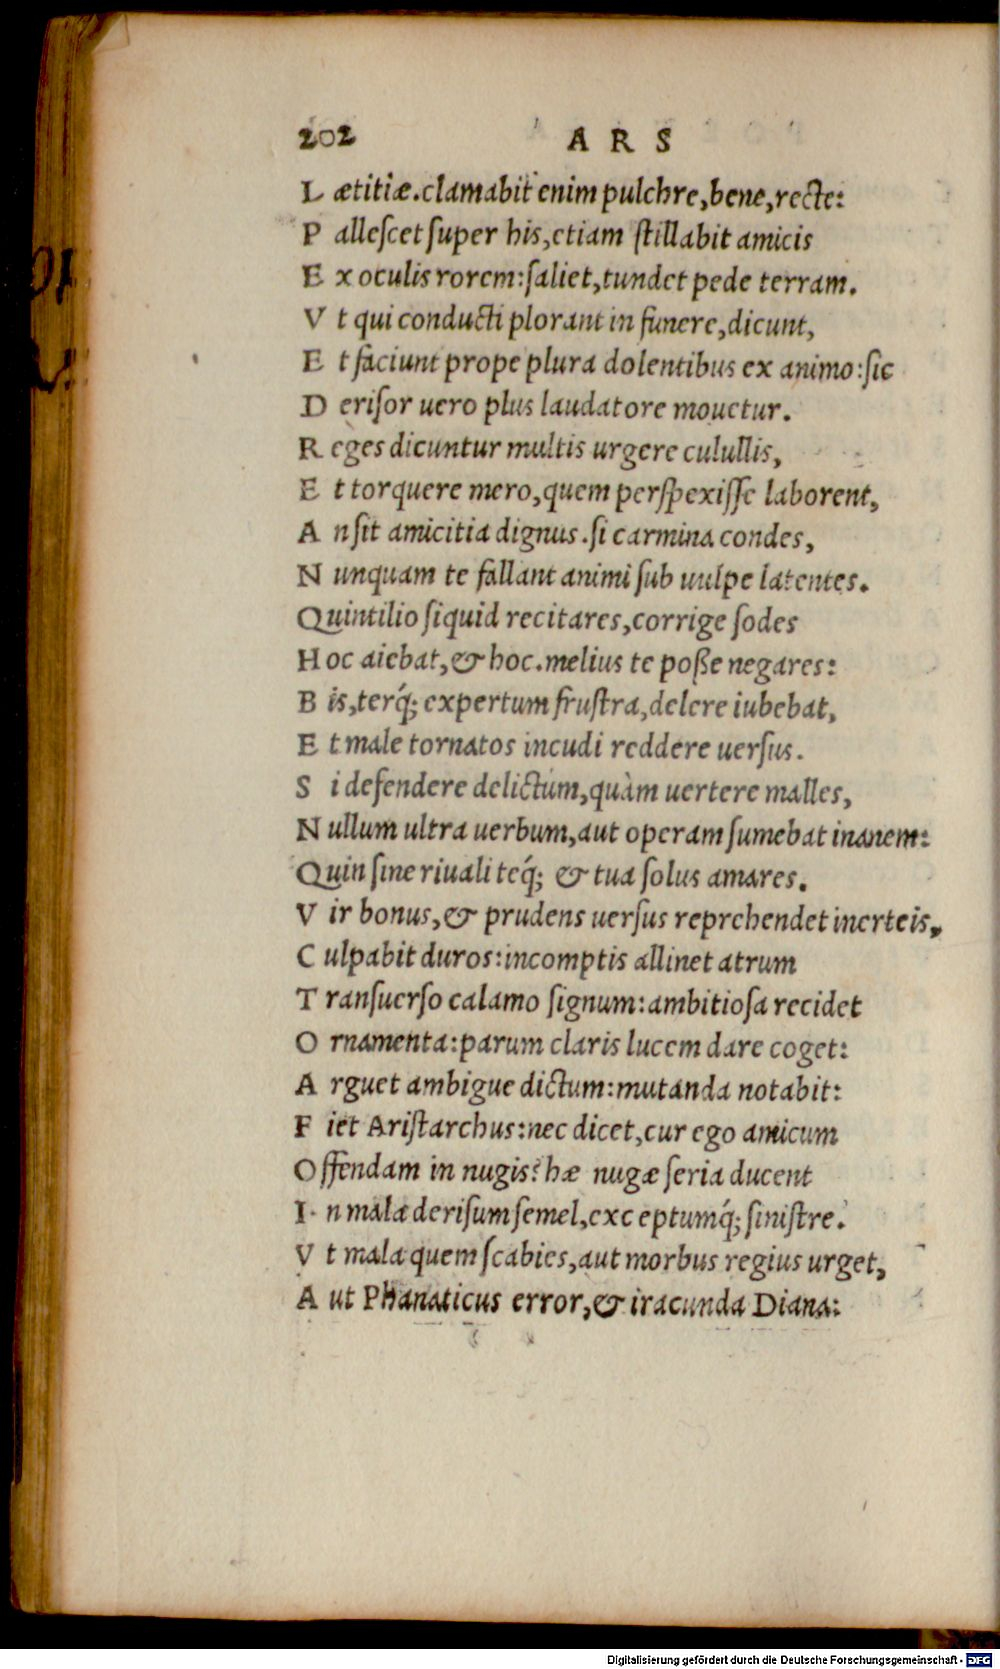 202 ARS
L ætitiæ. clamabit enim pulchre, bene, recte:
P alleſcet ſuper his, etiam ſtillabit amicis
E x oculis rorem: ſaliet, tundet pede terram.
V t qui conducti plorant in funere, dicunt,
E t faciunt prope plura dolentibus ex animo: ſic
D eriſor uero plus laudatore mouetur.
R eges dicuntur multis urgere culullis,
E t torquere mero, quem perſpexiſſe laborent,
A n ſit amicitia dignus. ſi carmina condes,
N unquam te fallant animi ſub uulpe latentes.
Quintilio ſiquid recitares, corrige ſodes
H oc aiebat, & hoc. melius te poße negares:
B is, terq́; expertum fruſtra, delere iubebat,
E t male tornatos incudi reddere uerſus.
S i defendere delictum, quàm uertere malles,
N ullum ultra uerbum, aut operam ſumebat inanem:
Quin ſine riuali teq́; & tua ſolus amares.
V ir bonus, & prudens uerſus reprehendet inerteis,
C ulpabit duros: incomptis allinet atrum
T ranſuerſo calamo ſignum: ambitioſa recidet
O rnamenta: parum claris lucem dare coget:
A rguet ambigue dictum: mutanda notabit:
F iet Ariſtarchus: nec dicet, cur ego amicum
O ffendam in nugis? hæ nugæ ſeria ducent
I n mala deriſum ſemel, exceptumq́; ſiniſtre.
V t mala quem ſcabies, aut morbus regius urget,
A ut Phanaticus error, & iracunda Diana:
Digitalisierung gefördert durch die Deutsche Forschungsgemeinschaft - DFG